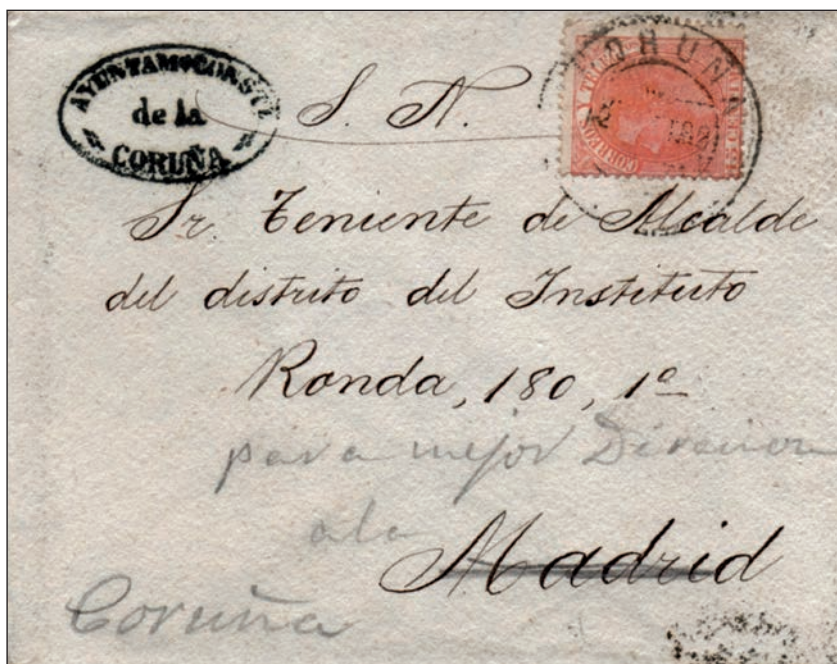 AYUNTAMTO CONSTL
de la
CORUÑA
S. N.
CORUÑA
CORREOS Y TELEG
15 CENT
Sr Teniente de Alcalde
del distrito del Instituto
Ronda, 180, 1º
para mejor Direccion
a la
Madrid
Coruña